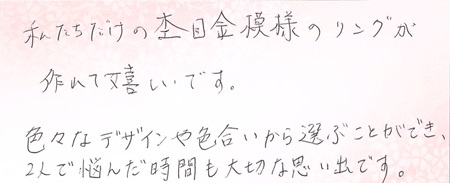 私たちだけの杢目金模様のリングが
作れて嬉しいです。
色々なデザインや色合いから選ぶことができ、
2人で悩んだ時間も大切な思い出です。